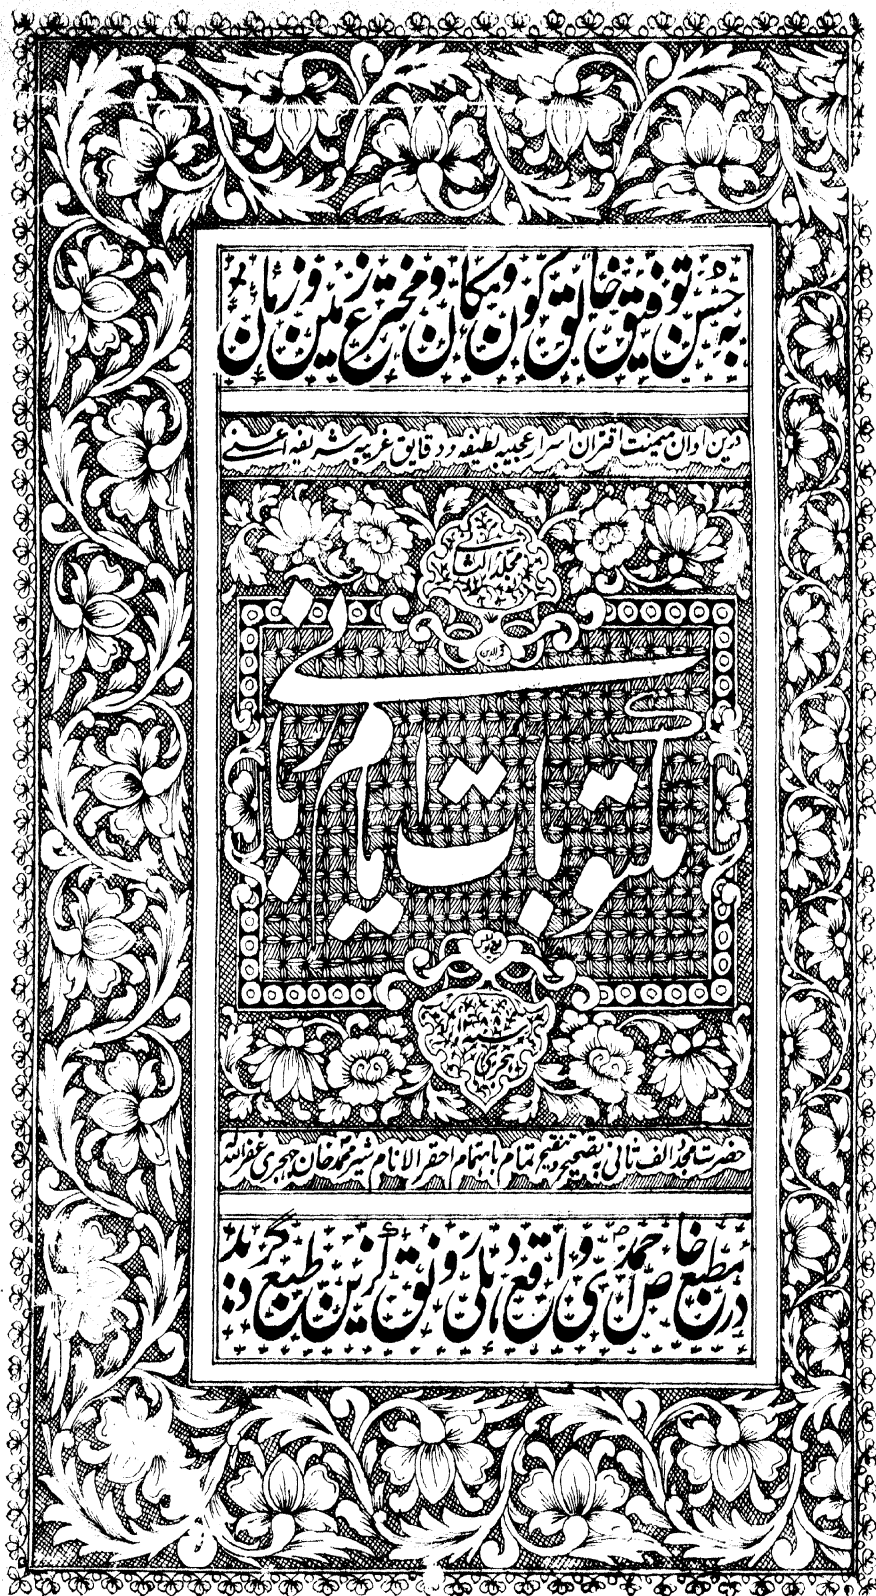 به حُسن توفیق خالق کون و مکان و مخترع زمین و زمان
درین اوان میمنت اقتران اسرار عجیبه لطیفه و دقایق غریبه شریفه اعنی
مکتوبات امام ربانی
حضرت مجدد الف ثانی به تصحیح و تنقیح تمام باهتمام احقر الانام شیر محمد خان جهجری غفر الله
در مطبع خاص احمدی واقع دهلی رونق گزین طبع گردید